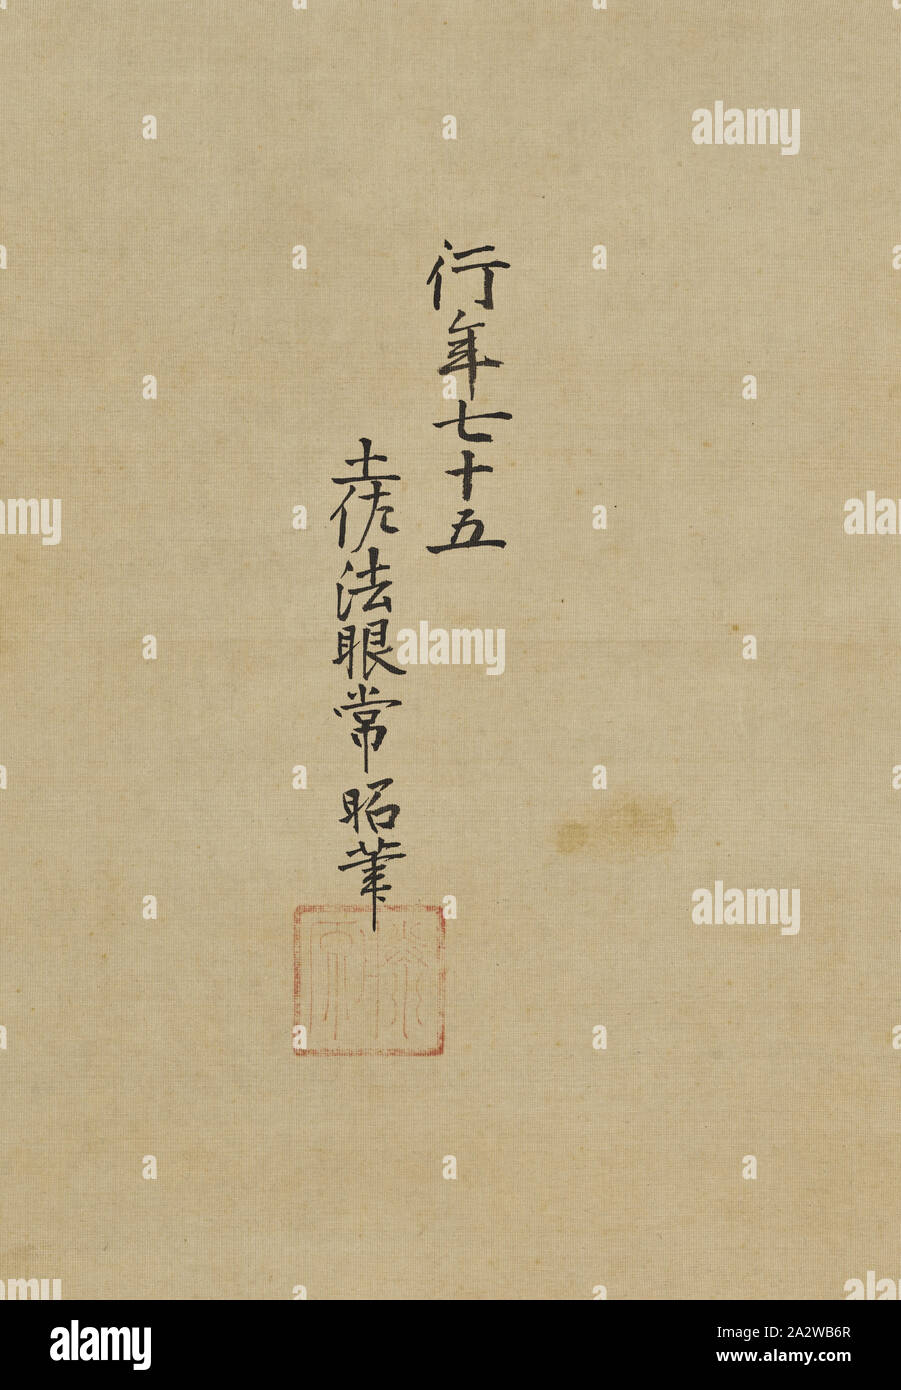 行年七十五
土佐法眼常昭筆
alamy
alamy
alamy
alamy
alamy
alamy
Image ID: 2A2WB6R
www.alamy.com